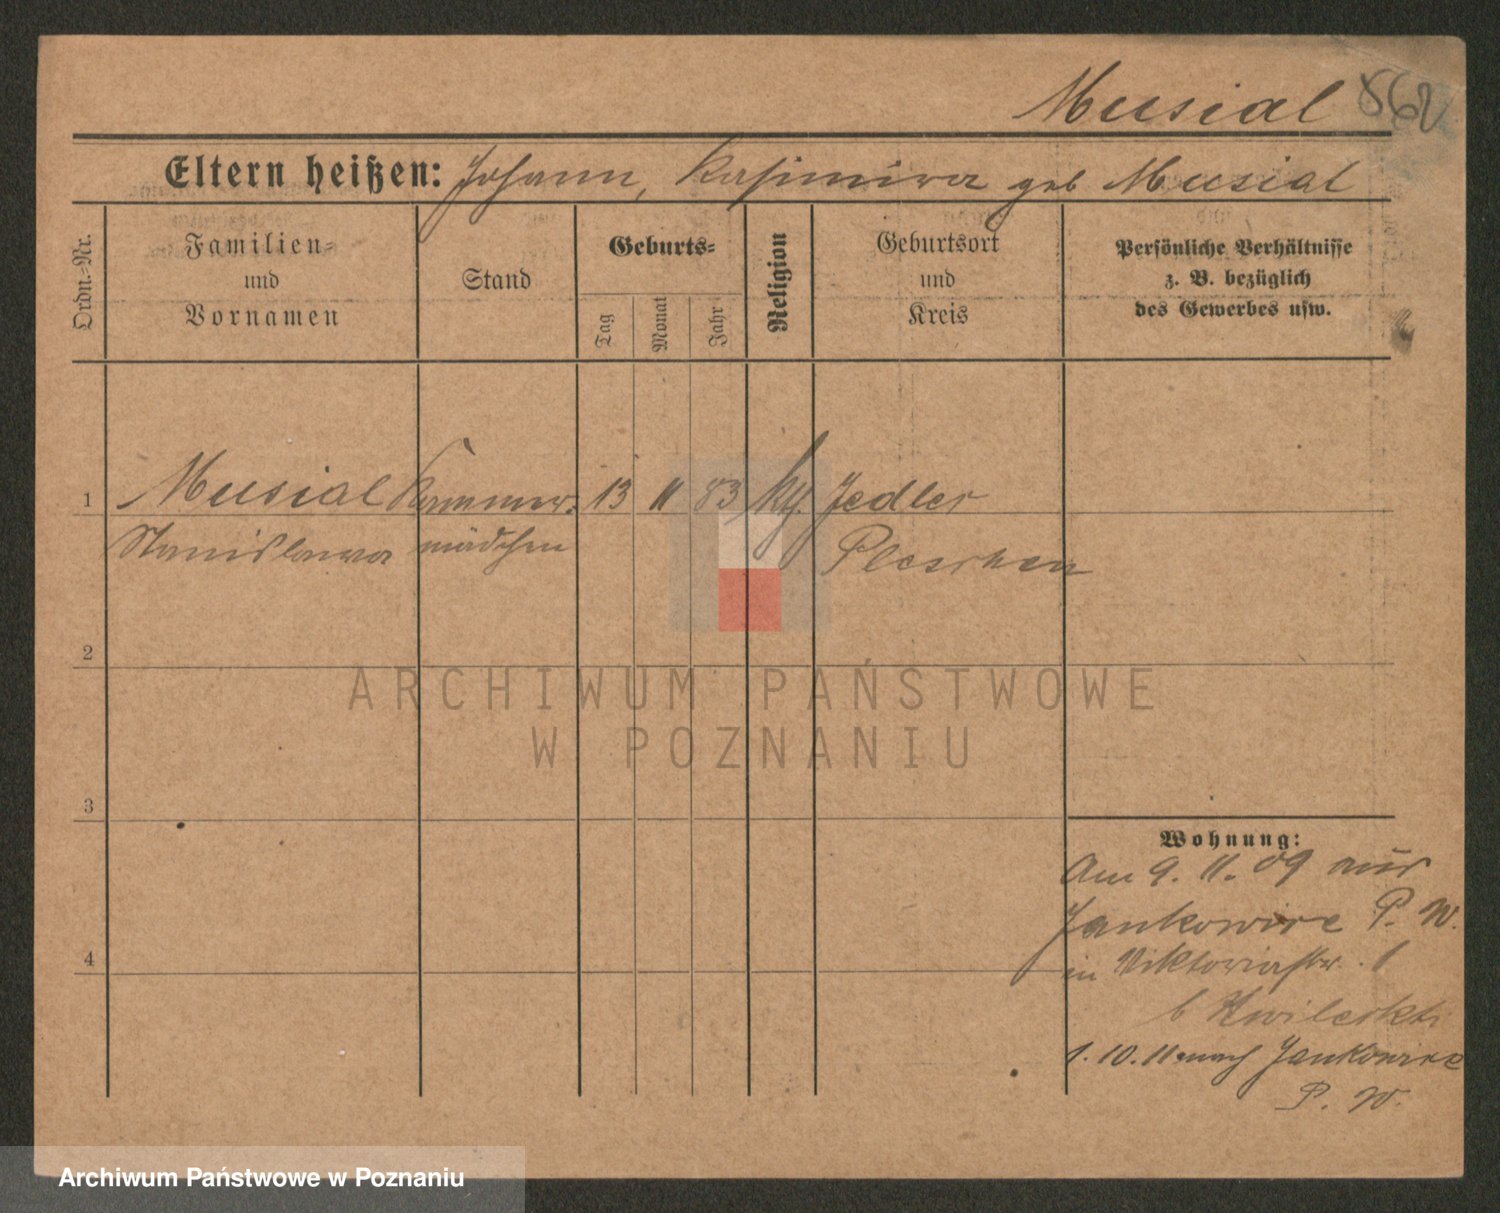 Musial 862
Eltern heißen: Johann, Kasimira geb Musial
Ordn.-Nr.
Familien-
und
Vornamen
Stand
Geburts-
Tag
Monat
Jahr
Religion
Geburtsort
und
Kreis
Persönliche Verhältnisse
z. B. bezüglich
des Gewerbes usw.
1 Musial Kammer- 13 11 83 kth. Jedlec
Stanislawa mädchen Pleschen
2
3
4
Wohnung:
Am 9. 11. 09 aus
Jankowice P. W.
in Viktoriastr. 1
b Kwilecki
1. 10. 11 nach Jankowice
P. W.
ARCHIWUM PAŃSTWOWE
W POZNANIU
Archiwum Państwowe w Poznaniu